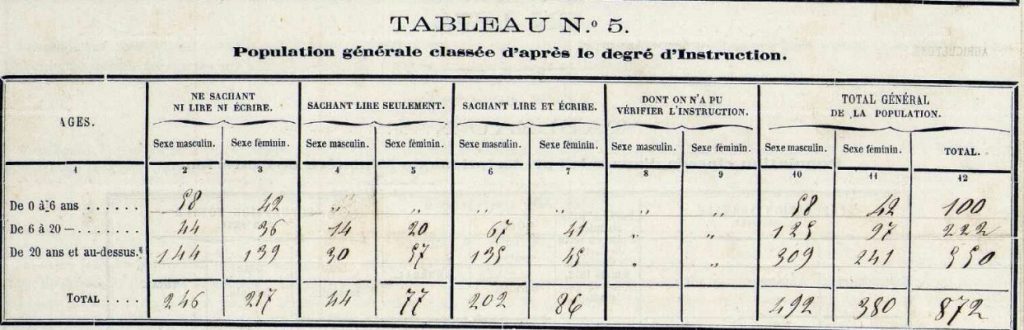 TABLEAU N.o 5.
Population générale classée d'après le degré d'Instruction.
AGES. NE SACHANT NI LIRE NI ÉCRIRE. SACHANT LIRE SEULEMENT. SACHANT LIRE ET ÉCRIRE. DONT ON N'A PU VÉRIFIER L'INSTRUCTION. TOTAL GÉNÉRAL DE LA POPULATION.
Sexe masculin. Sexe féminin. Sexe masculin. Sexe féminin. Sexe masculin. Sexe féminin. Sexe masculin. Sexe féminin. Sexe masculin. Sexe féminin. TOTAL.
1 2 3 4 5 6 7 8 9 10 11 12
De 0 à 6 ans . . . . . . 58 42 „ „ „ „ „ „ 58 42 100
De 6 à 20 — . . . . . 44 36 14 20 67 41 „ „ 125 97 222
De 20 ans et au-dessus. 144 139 30 57 135 45 „ „ 309 241 550
TOTAL . . . . 246 217 44 77 202 86 492 380 872